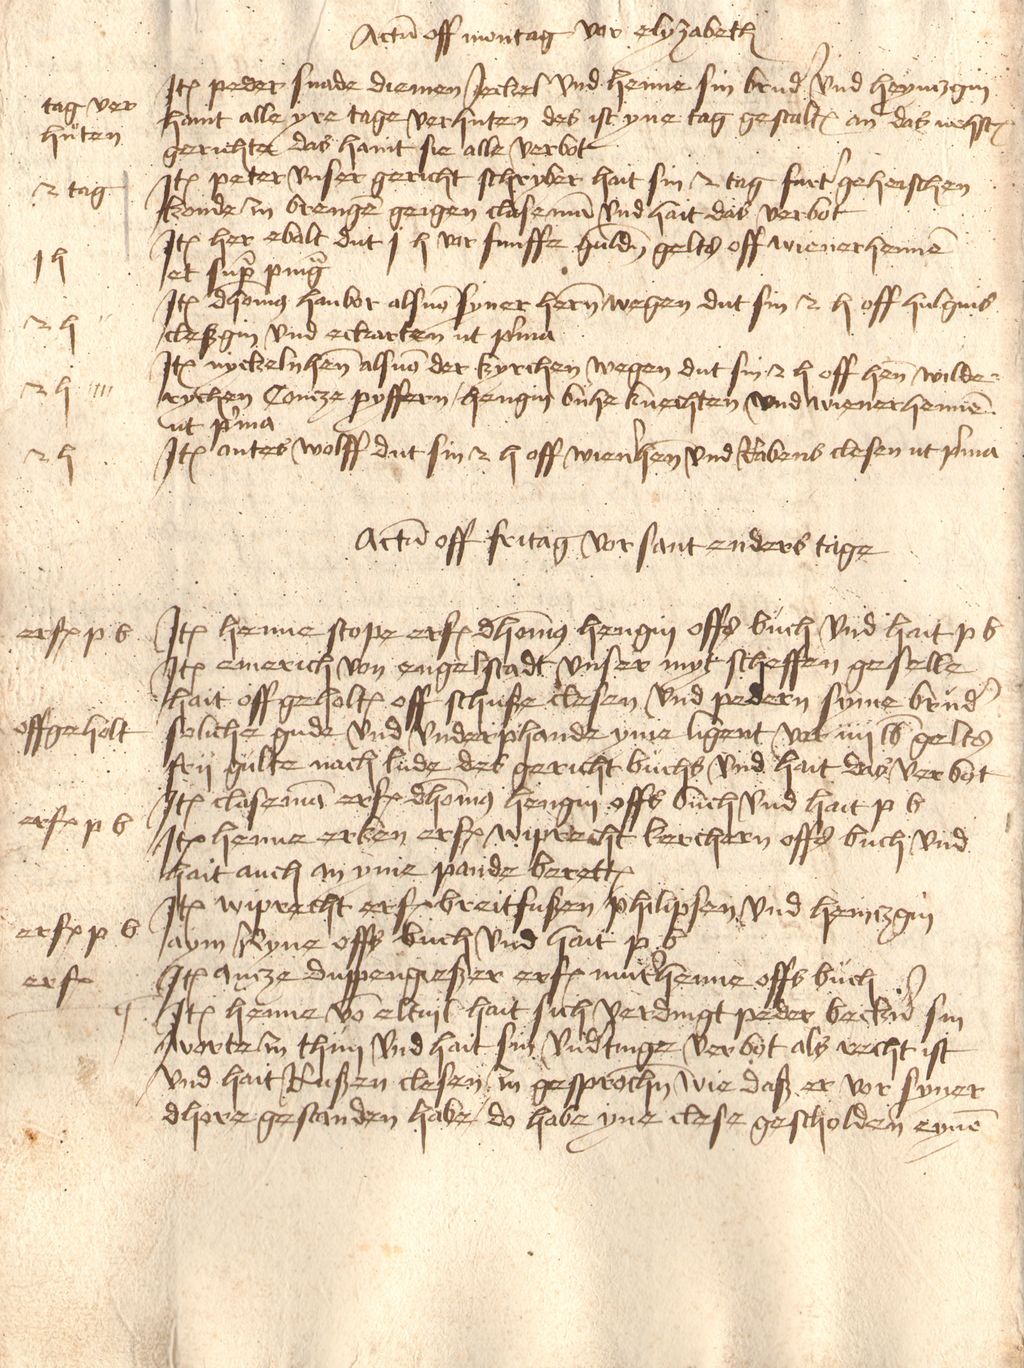 Actu᷈ off montag vor elyzabeth
tag ver
huten
Itꝫ peder snade diemen Jeckel vnd henne sin brud᷑ vnd heyntzgin
haint alle yre tage verhuten des ist yne tag gestalt an das nehste
gerichte das haint sie alle verbot
2 tag
Itꝫ peter vnser gericht schryber hait sin 2 tag furt᷑ geheischen
konde zu brenge᷈ geigen clasema᷈ vnd hait das verbot
1 h
Itꝫ her ebalt dut j h vor funffe guld᷈ gelts off wienerhenne᷈
et sup᷑ ping᷑
2 h
Itꝫ dhom᷈ hanbor als vo᷈ syner her᷈ wegen dut sin 2 h off hulguis
cleßgin vnd eckarten ut p᷑ma
2 h
Itꝫ nyckelnhen᷈ als vo᷈ der kyrchen wegen dut sin 2 h off hen᷈ wilde
rychen Contze pyffern hengin buhe knechten vnd wienerhenne᷈
ut p᷑ma
2 h
Itꝫ antes wolff dut sin 2 h off wien᷑hen᷈ vnd Rabens clesen ut p᷑ma
Actu᷈ off fritag vor sant enders tage
erfꝫ p b
Itꝫ henne stope erfꝫ dhom᷈ hengin offs buch vnd hait p b
Itꝫ emerich von engelstadt vnser myt scheffen geselle
hait offgeholt off schuße clesen vnd pedern syme brud᷑
offgeholt
soliche gude vnd vnderphande yme ligent vor iiij lb gelts
frij gulte nach lude des gericht buchs vnd hait das verbot
Itꝫ clasema᷈ erfꝫ dhom᷈ hengin offs buch vnd hait p b
erfꝫ p b
Itꝫ henne erken erfꝫ wiprecht kerchern offs buch vnd
hait auch an yme pande berettꝫ
Itꝫ wiprecht erfꝫ breitfußen philipsen vnd hentzgin
erfꝫ p b
aym Ryne offs buch vnd hait p b
erfꝫ
Itꝫ antze duppengießer erfꝫ mut᷑henne offs buch
Itꝫ henne vo᷈ eltuil hait sich verdingt peder beck᷑ sin
worte zu thun vnd hait sin vndtinge verbot als recht ist
vnd hait Rußen clesen zu gesproch᷈ wie daß er vor syner
dhore gestanden habe do habe yne clese gescholden eyne᷈